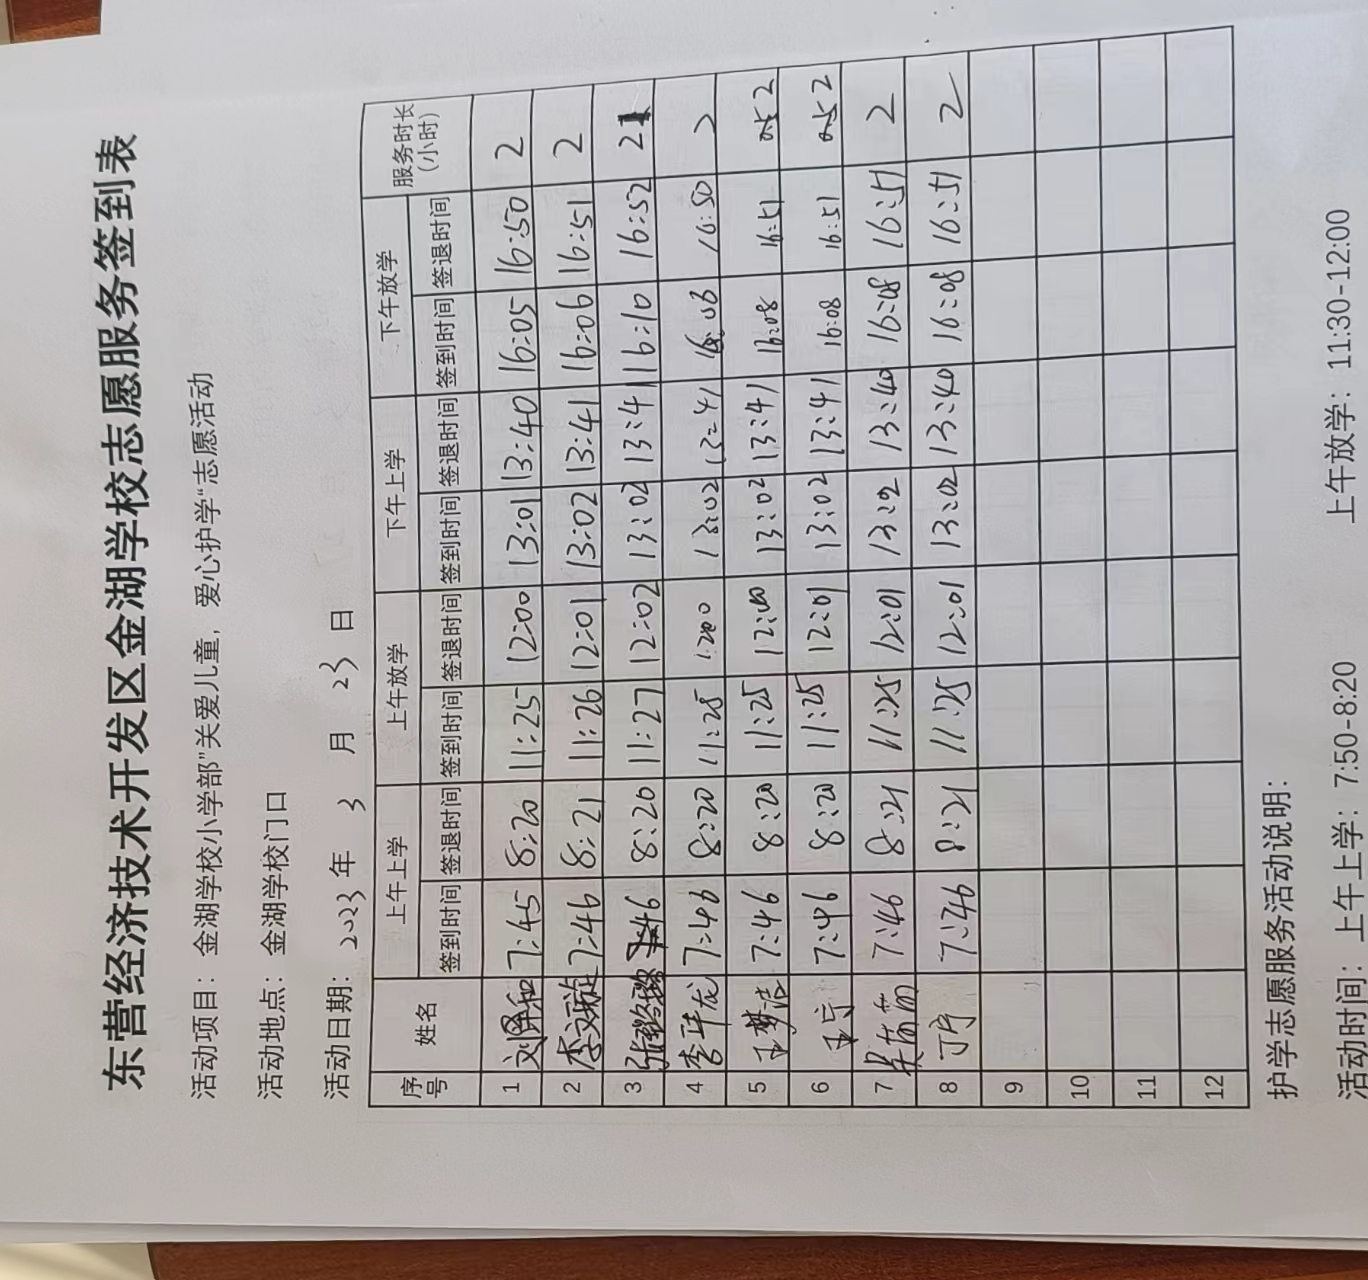 东营经济技术开发区金湖学校志愿服务签到表
活动项目：金湖学校小学部"关爱儿童，爱心护学"志愿活动
活动地点：金湖学校门口
活动日期：2023年 3 月 23 日
序号 姓名 上午上学 上午放学 下午上学 下午放学 服务时长（小时）
签到时间 签退时间 签到时间 签退时间 签到时间 签退时间 签到时间 签退时间
1 7:45 8:20 11:25 12:00 13:01 13:40 16:05 16:50 2
2 李文璇 7:46 8:21 11:26 12:01 13:02 13:41 16:06 16:51 2
3 7:46 8:20 11:27 12:02 13:02 13:41 16:10 16:52 2
4 7:46 8:20 11:28 1200 13:02 13:41 16:06 16:50 2
5 王梦洁 7:46 8:20 11:25 12:00 13:02 13:41 16:08 16:51 2
6 王宁 7:46 8:20 11:25 12:01 13:02 13:41 16:08 16:51 2
7 7:46 8:21 11:25 12:01 13:02 13:40 16:08 16:51 2
8 丁宁 7:46 8:21 11:25 12:01 13:02 13:40 16:08 16:51 2
9
10
11
12
护学志愿服务活动说明：
活动时间：上午上学：7:50-8:20 上午放学：11:30-12:00